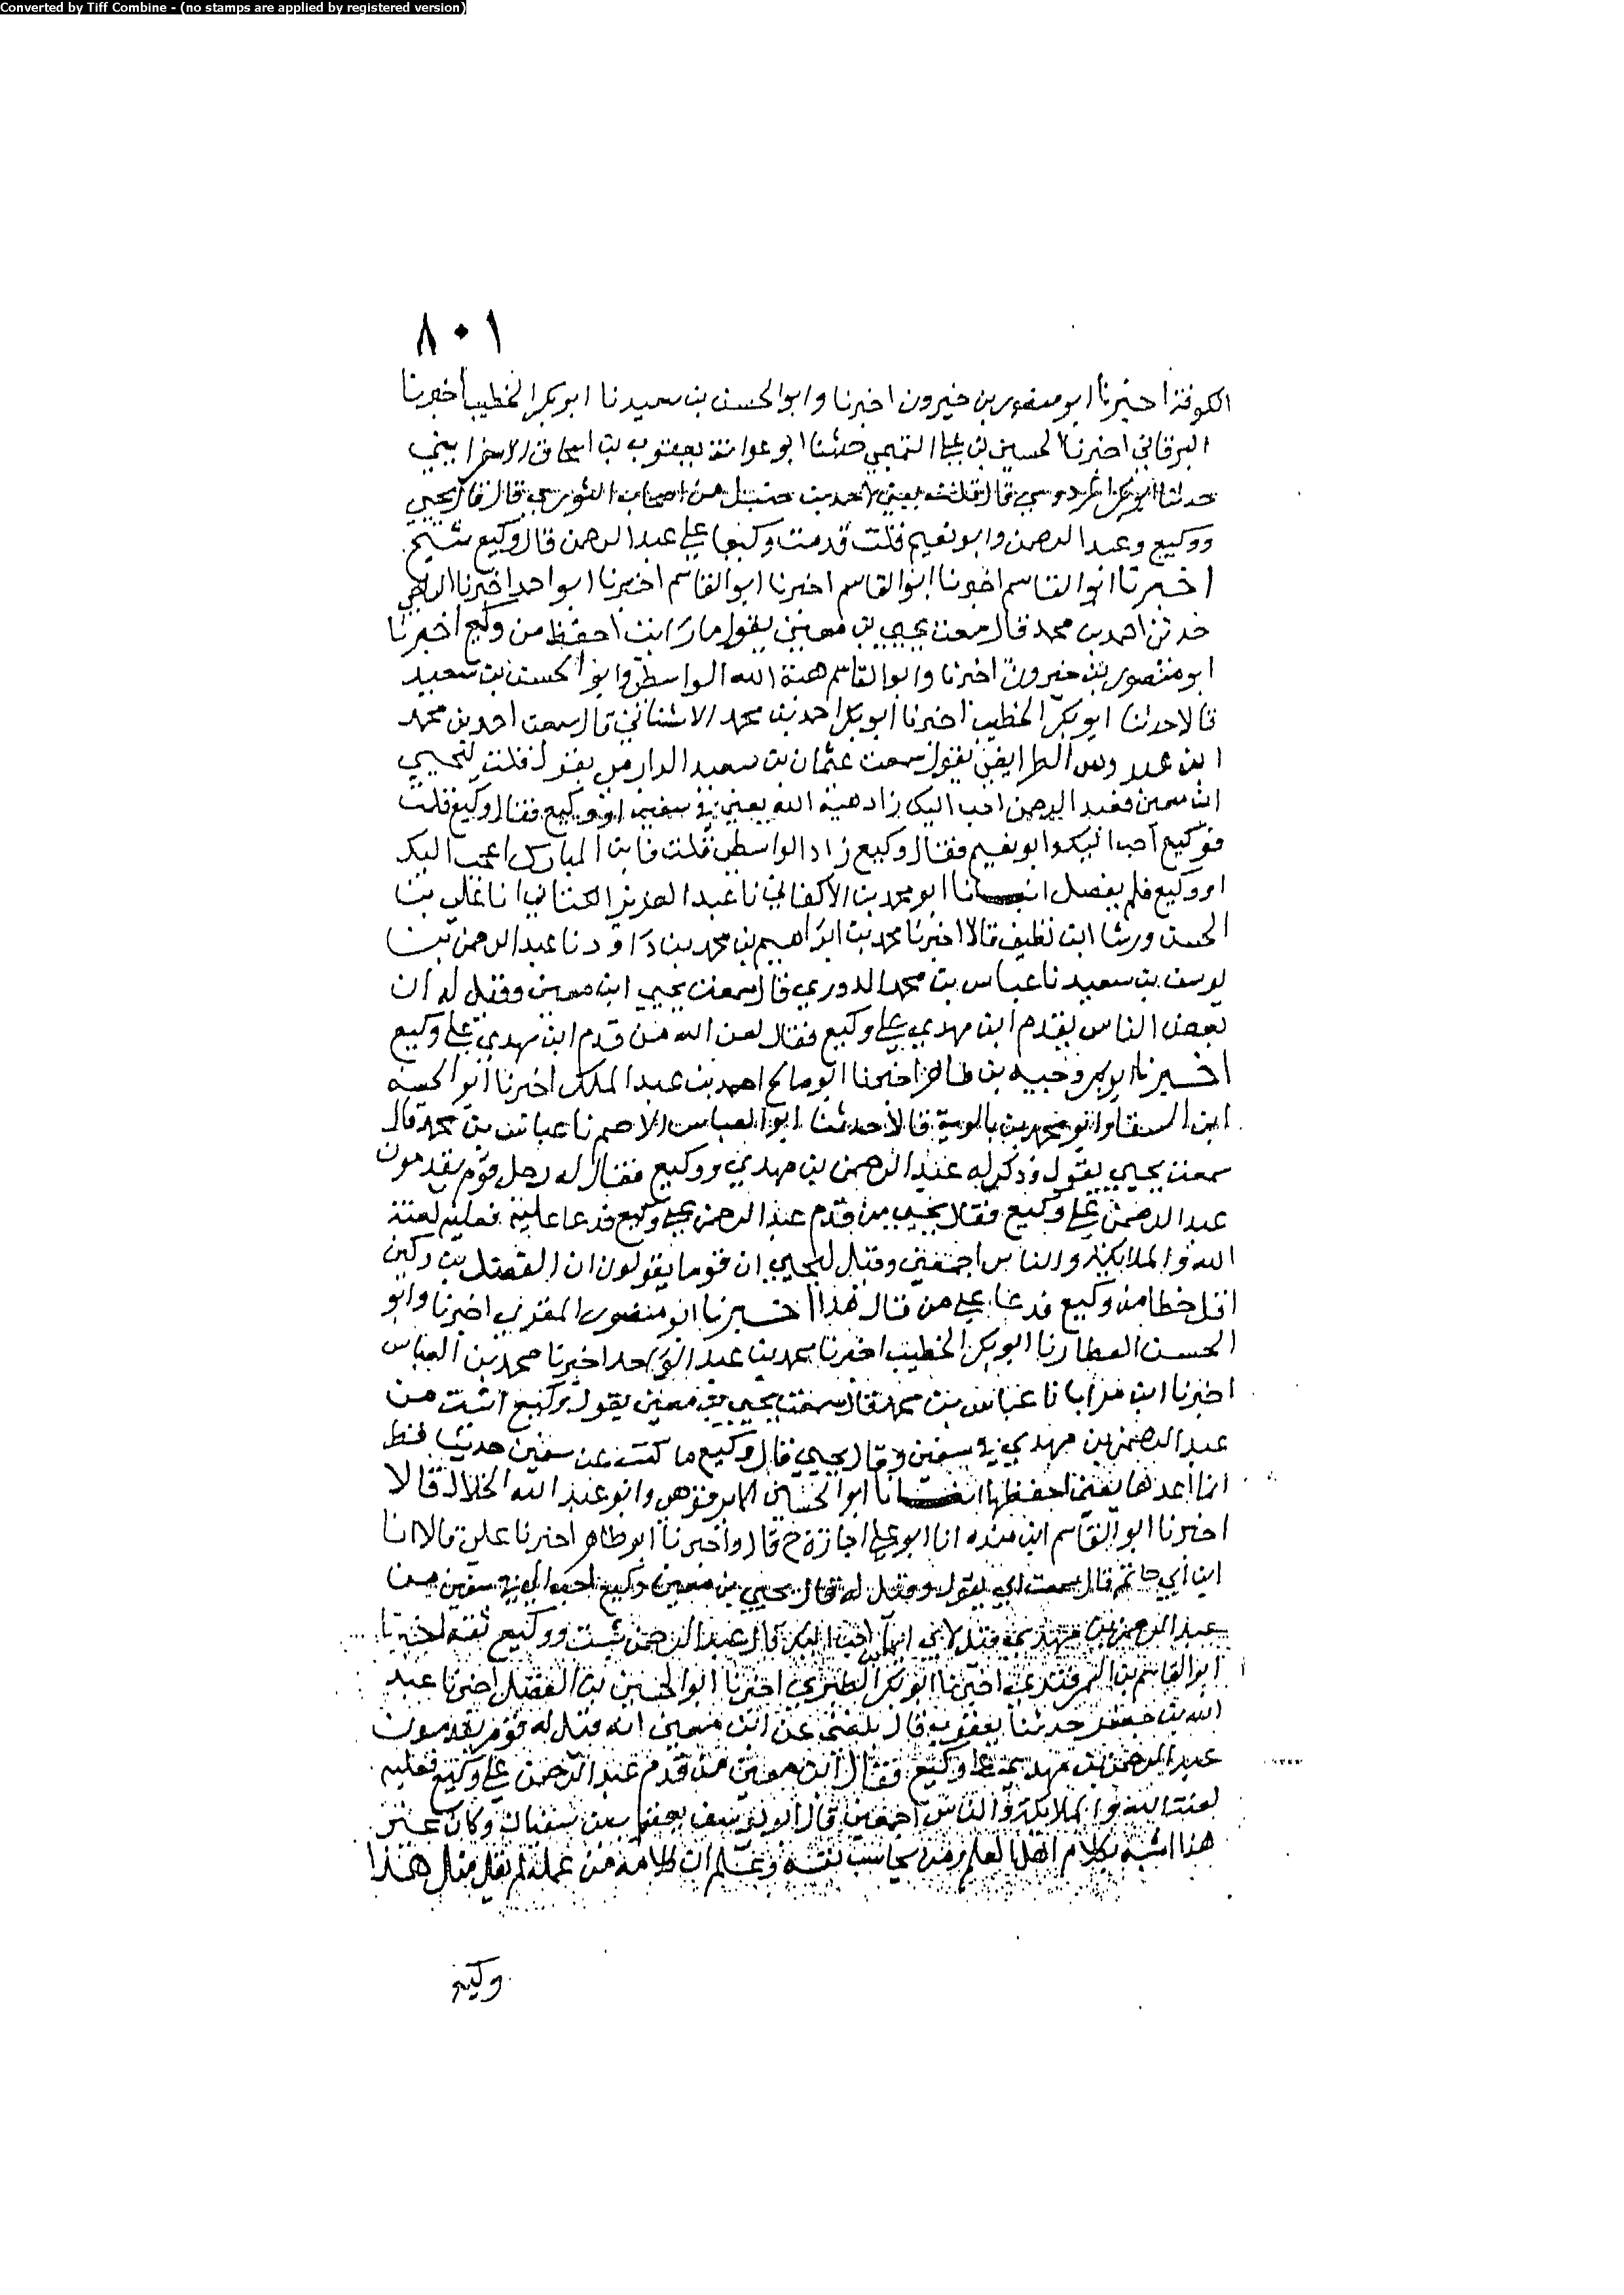 Converted by Tiff Combine - (no stamps are applied by registered version)
٨٠١
الكوفة اخبرنا ابو منصور بن خيرون اخبرنا وابو الحسن بن سعيد نا ابو بكر الخطيب أخبرنا
البرقاني اخبرنا الحسين بن علي التميمي حدثنا ابو عوانة يعقوب بن اسحاق الاسفرايني
حدثنا ابو بكر المروذي قال قلت يعني لاحمد بن حنبل من اصحاب الثوري قال قال يحيى
ووكيع وعبد الرحمن وابو نعيم قلت قدمت وكيعا على عبد الرحمن قال وكيع شيخ
اخبرنا ابو القاسم اخبرنا ابو القاسم اخبرنا ابو القاسم اخبرنا ابو احمد اخبرنا
حدثني احمد بن محمد قال سمعت يحيى بن معين يقول ما رايت احفظ من وكيع اخبرنا
ابو منصور بن خيرون اخبرنا وابو القاسم هبة الله الواسطي وابو الحسن بن سعيد
قالا حدثنا ابو بكر الخطيب اخبرنا ابو بكر احمد بن محمد الاشناني قال سمعت احمد بن محمد
ابن عبدوس الطرايفي يقول سمعت عثمان بن سعيد الدارمي يقول قلت ليحيى
ابن معين فعبد الرحمن احب اليك زاد هبة الله يعني في سفين او وكيع فقال وكيع قلت
فوكيع أحب اليك او ابو نعيم فقال وكيع زاد الواسطي قلت فابن المبارك اعجب اليك
او وكيع فلم يفضل انبانا ابو محمد بن الاكفاني نا عبد العزيز الكتاني انا علي بن
الحسن ورشا ابن نظيف قالا اخبرنا محمد بن ابراهيم بن محمد بن داود نا عبد الرحمن بن
يوسف بن سعيد نا عباس بن محمد الدوري قال سمعت يحيى ابن معين وقيل له ان
بعض الناس يقدم ابن مهدي على وكيع فقال لعن الله من قدم ابن مهدي على وكيع
اخبرنا ابو بكر وجيه بن طاهر اخبرنا ابو صالح احمد بن عبد الملك اخبرنا ابو الحسن
ابن السقا وابو محمد بن بالوية قالا حدثنا ابو العباس الاصم نا عباس بن محمد قال
سمعت يحيى يقول وذكر له عبد الرحمن بن مهدي ووكيع فقال له رجل قوم يقدمون
عبد الرحمن على وكيع فقال يحيى من قدم عبد الرحمن على وكيع فدعا عليه فعليه لعنة
الله والملايكة والناس اجمعين وقيل ليحيى ان قوما يقولون ان الفضل بن دكين
اقل خطا من وكيع فدعا على من قال هذا اخبرنا ابو منصور المقري اخبرنا وابو
الحسن العطار نا ابو بكر الخطيب اخبرنا محمد بن عبد الواحد اخبرنا محمد بن العباس
اخبرنا ابن مرابا نا عباس بن محمد قال سمعت يحيى بن معين يقول وكيع اثبت من
عبد الرحمن بن مهدي في سفين وقال يحيى قال وكيع ما كتبت عن سفين حديثا قط
انما اعدها يعني احفظها انبانا ابو الحسين الابرقوهي وابو عبد الله الخلال قالا
اخبرنا ابو القاسم ابن منده انا ابو علي اجازة ح قال واخبرنا ابو طاهر اخبرنا علي قالا انا
ابن أبي حاتم قال سمعت ابي يقول وقيل له قال يحيى بن معين وكيع احب الي في سفين من
عبد الرحمن بن مهدي فقيل لابي ايما احب اليك قال عبد الرحمن ثبت ووكيع ثقة اخبرنا
ابو القاسم بن السمرقندي اخبرنا ابو بكر الطبري اخبرنا ابو الحسين بن الفضل اخبرنا عبد
الله بن جعفر حدثنا يعقوب قال بلغني عن ابن معين انه قيل له قوم يقدمون
عبد الرحمن بن مهدي على وكيع فقال ابن معين من قدم عبد الرحمن على وكيع فعليه
لعنت الله والملايكة والناس اجمعين قال ابو يوسف يعقوب بن سفيان وكان غير
هذا اشبه بكلام اهل العلم ومن يحاسب نفسه وعلم ان كلامه من عمله لم يقل مثل هذا
وكيع